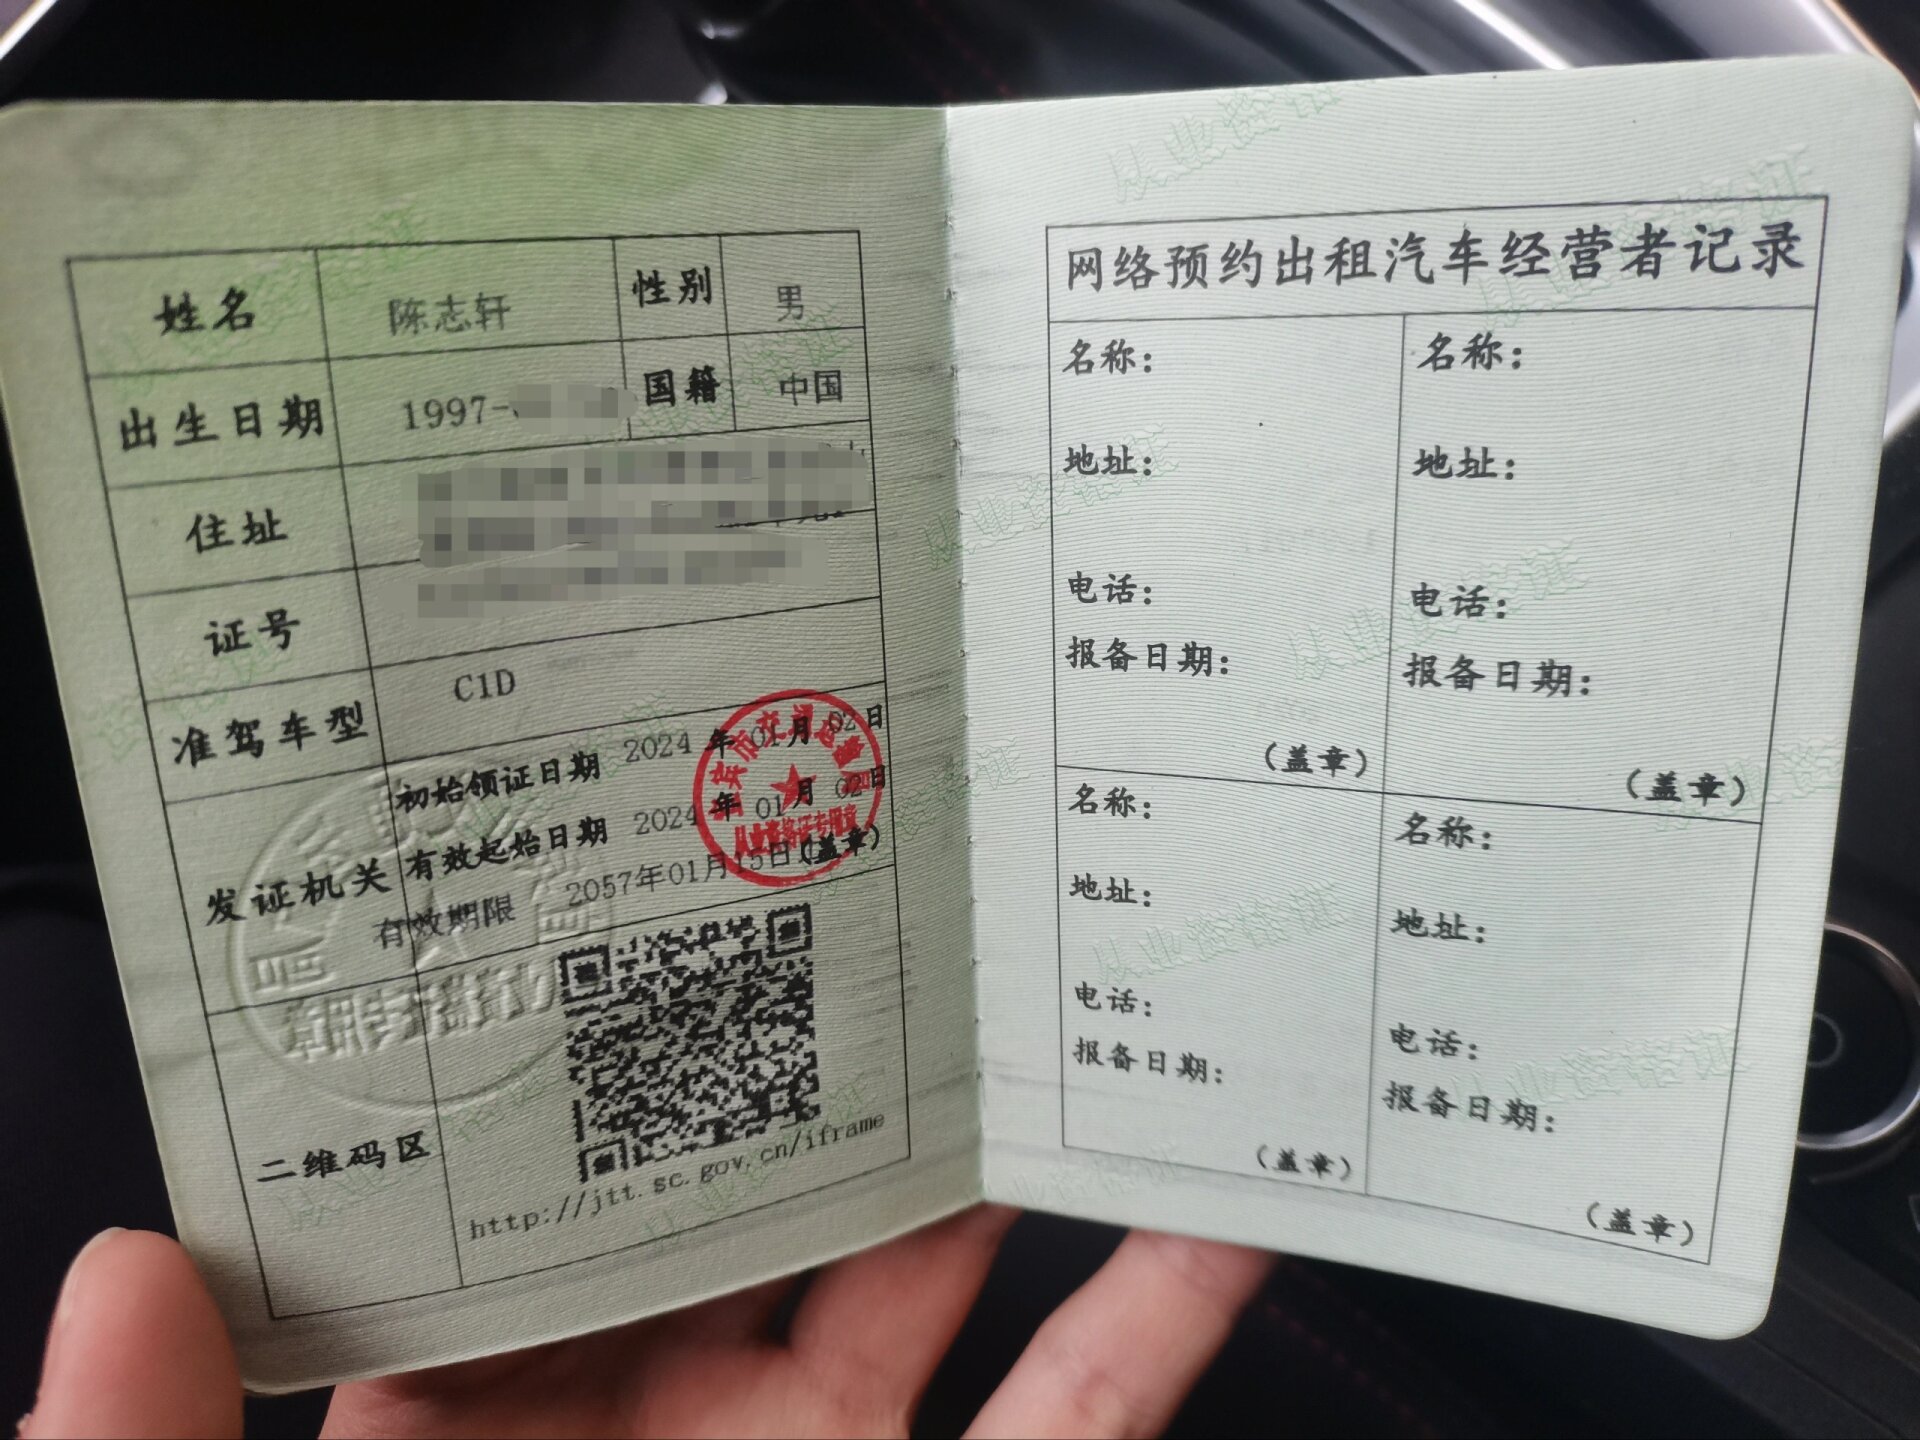 姓名 陈志轩 性别 男
出生日期 1997- 国籍 中国
住址
证号
准驾车型 C1D
初始领证日期 2024年01月02日
发证机关 有效起始日期 2024年01月02日
(盖章)
有效期限 2057年01月15日
从业资格证专用章
二维码区
http://jtt.sc.gov.cn/iframe
网络预约出租汽车经营者记录
名称:
地址:
电话:
报备日期:
(盖章)
名称:
地址:
电话:
报备日期:
(盖章)
名称:
地址:
电话:
报备日期:
(盖章)
名称:
地址:
电话:
报备日期:
(盖章)
从业资格证